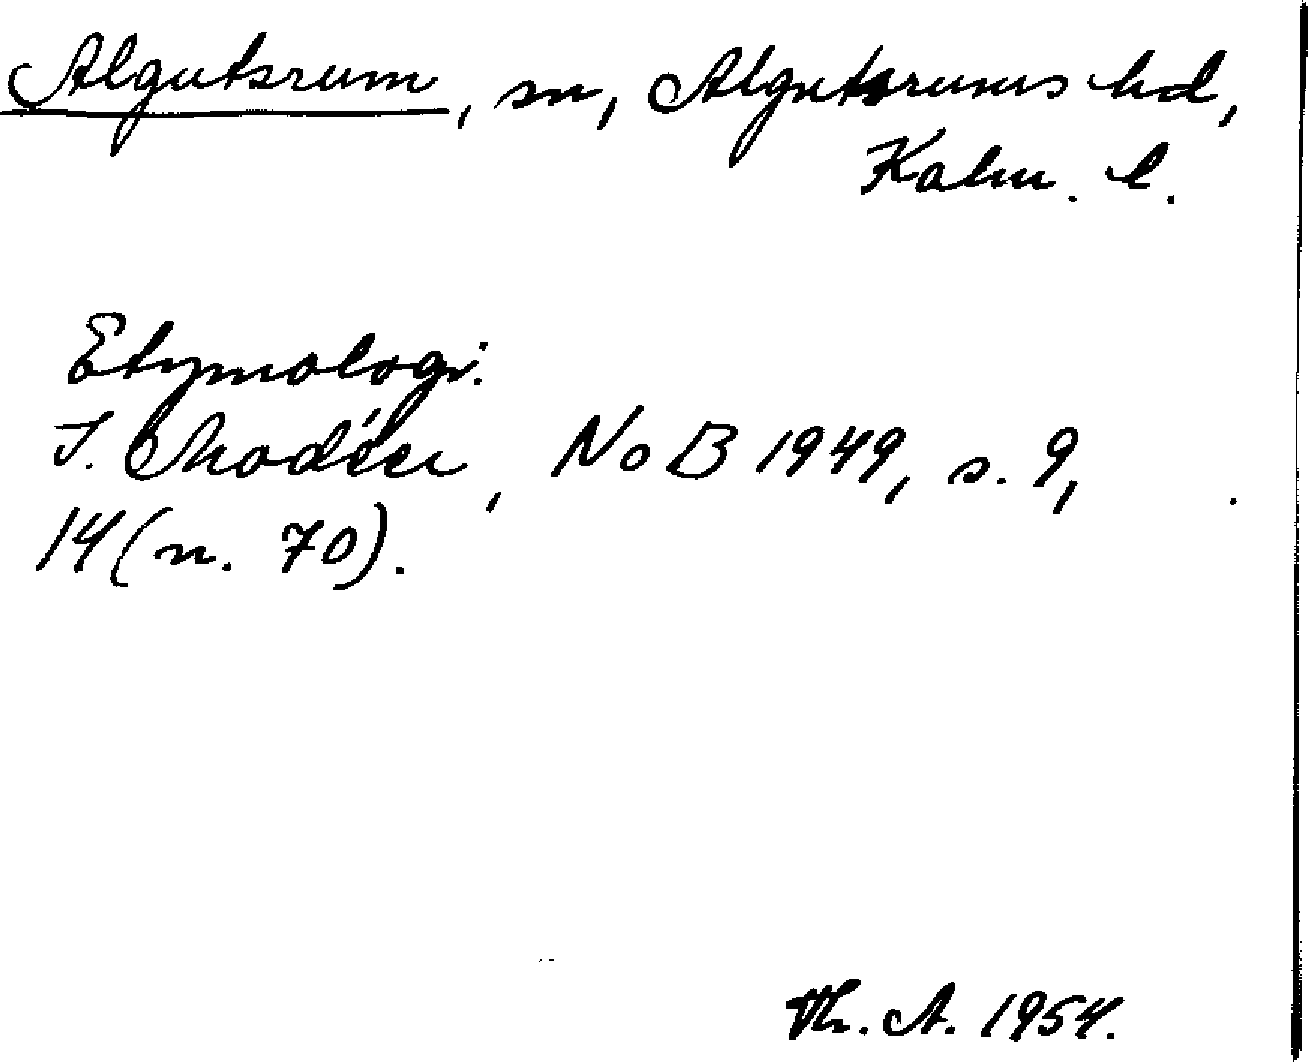 Algutsrum, sn, Algutsrums hd,
Kalm. l.
Etymologi.
I. Modéer, NoB 1949, s. 9,
14 (n. 70).
Th. A. 1954.